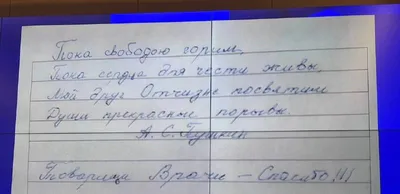 Пока свободою горим,
Пока сердца для чести живы,
Мой друг Отчизне посвятим
Души прекрасные порывы.
А. С. Пушкин
Товарищи Врачи – Спасибо!!!